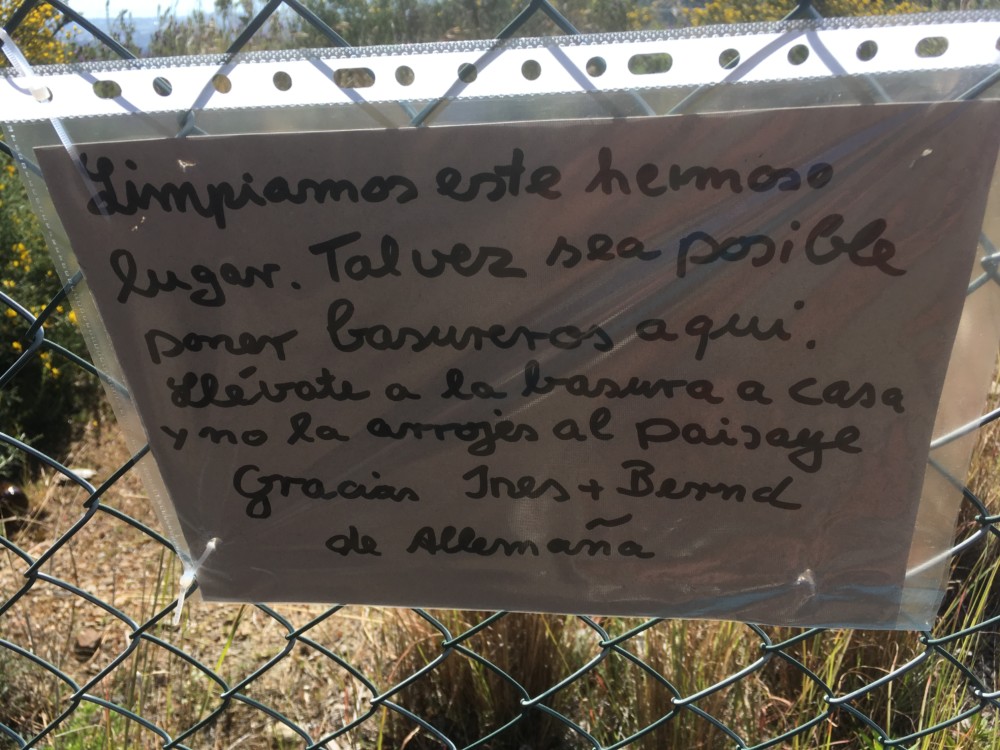 Limpiamos este hermoso
lugar. Tal vez sea posible
poner basureros aqui.
Llévate a la basura a casa
y no la arrojes al paisaye
Gracias Ines + Bernd
de Allemaña